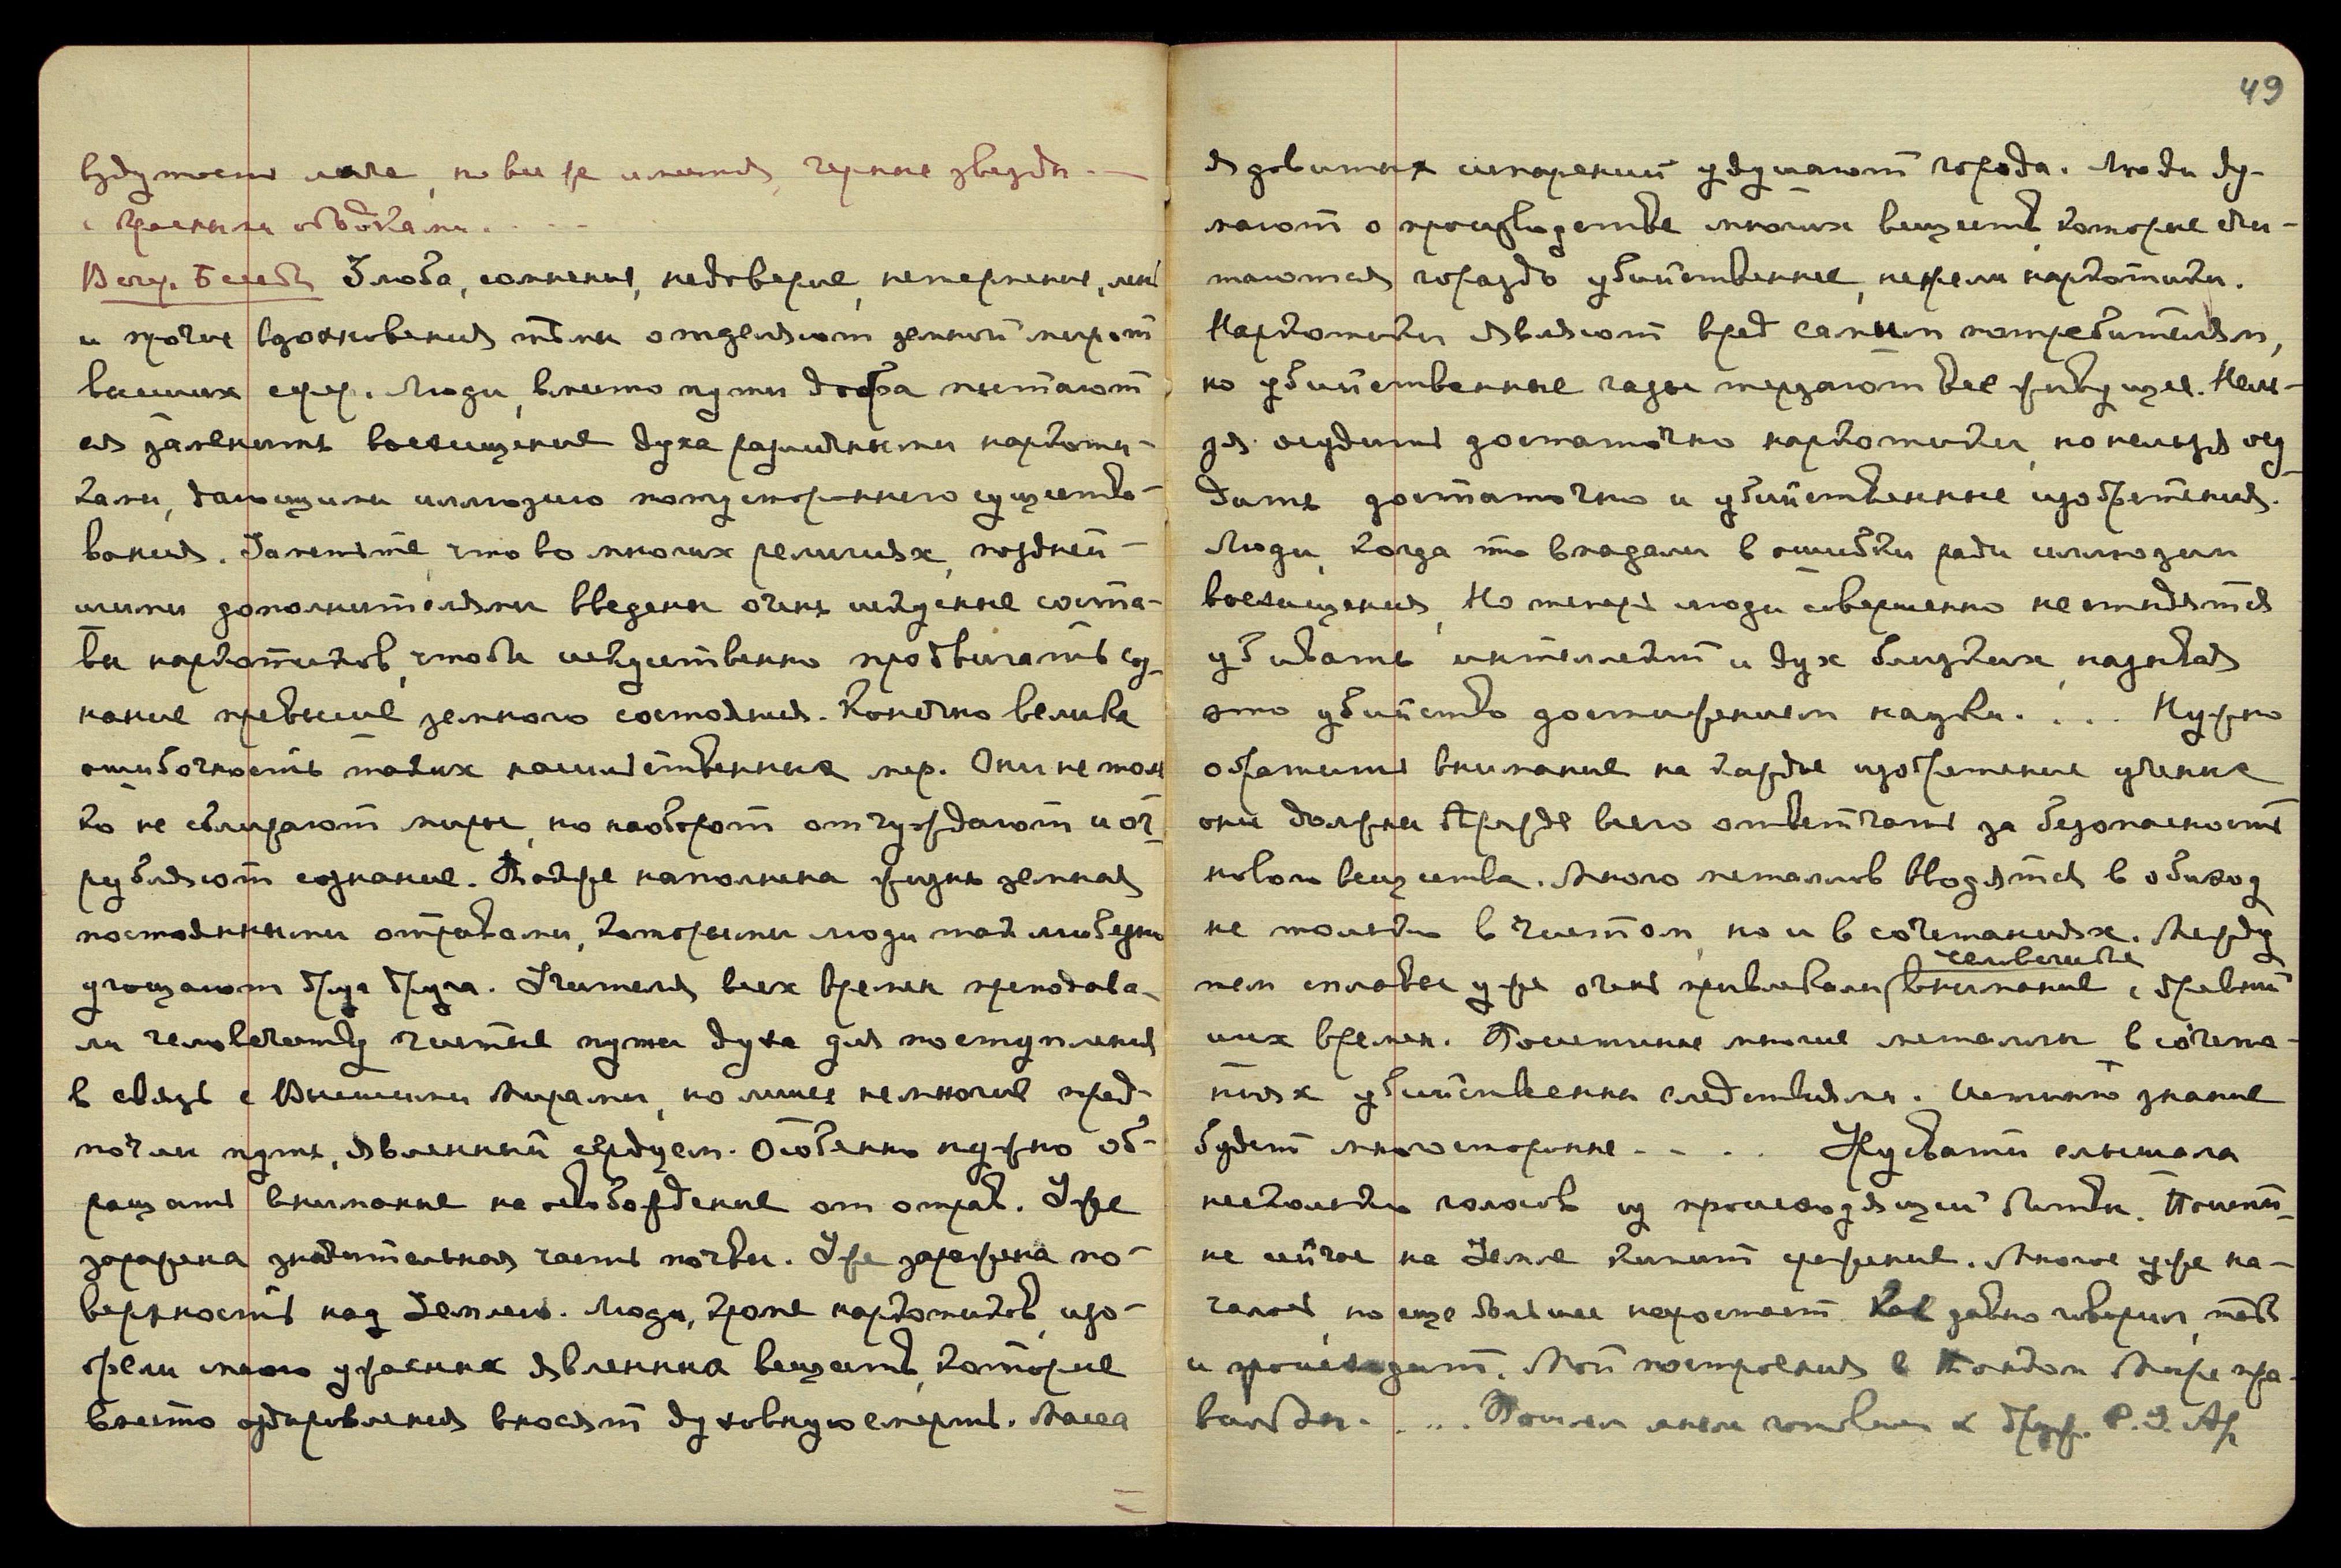 вздутость мала, но все же имеются черные звезды. —
с красными ободками. . . . .
Вечер. Беседа Злоба, сомнения, недоверие, нетерпение, лень
и прочие вдохновения тьмы отделяют земной мир от
высших сфер. Люди, вместо пути добра пытают
ся заменить восхищение духа различными наркоти-
ками, дающими иллюзию потустороннего существо-
вания. Заметьте, что во многих религиях, поздней-
шими дополнителями введены очень искусные соста-
вы наркотиков, чтобы искусственно продвигать со-
знание превыше земного состояния. Конечно велика
ошибочность таких насильственных мер. Они не толь
ко не сближают миры, но наоборот отчуждают и ог-
рубляют сознание. Также наполнена жизнь земная
постоянными отравами, которыми люди так любезно
угощают друг друга. Учителя всех времен преподава-
ли человечеству чистые пути духа для поступления
в связь с Высшими Мирами, но лишь немногие пред-
почли путь, явленный сердцем. Особенно нужно об-
ращать внимание на освобождение от отрав. Уже
заражена значительная часть почвы. Уже заражена по-
верхность над Землею. Люди, кроме наркотиков, изо-
брели много ужасных явленных веществ, которые
вместо оздоровления вносят духовную смерть. Масса
49
ядовитых испарений удушают города. Люди ду-
мают о производстве многих веществ, которые счи-
таются гораздо убийственнее, нежели наркотики.
Наркотики являют вред самим потребителям,
но убийственные газы терзают все живущее. Нель-
зя осудить достаточно наркотики, но нельзя осу-
дить достаточно и убийственные изобретения.
Люди когда то впадали в ошибки ради иллюзии
восхищения, Но теперь люди совершенно не стыдятся
убивать интеллект и дух близких, называя
это убийство достижением науки. . . . Нужно
обратить внимание на каждое изобретение ученых
они должны прежде всего отвечать за безопасность
нового вещества. Много металлов вводятся в обиход
не только в чистом, но и в сочетаниях. Между
человечества
тем сплавы уже очень привлекали внимание с древней
ших времен. Поистине многие металлы в сочета-
ниях убийственны следствиями. Истинно знание
будет многосторонне. . . . . Урусвати слышала
несколько голосов из происходящей битвы. Поистине
не сейчас на Земле кипит сражение. Многое уже на-
чалось, но еще большее нарастает. Как давно говорил, так
и происходит. Мои построения в Тонком Мире пра-
вильны. . . . Пошлем мысли к друж.